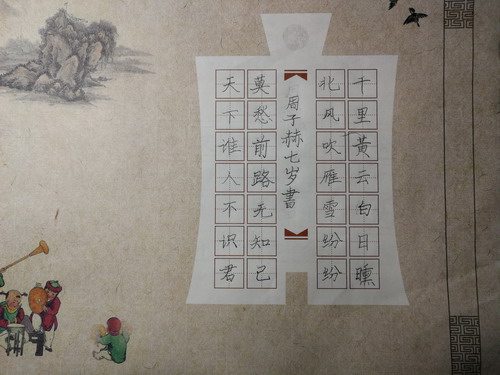 千里黄云白日曛
北风吹雁雪纷纷
周子赫七岁書
莫愁前路无知己
天下谁人不识君